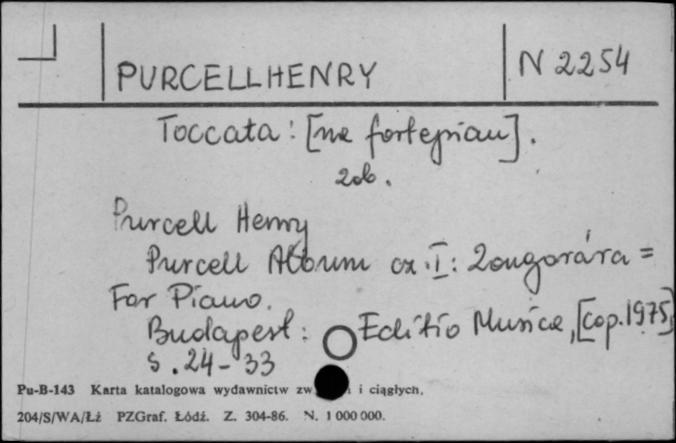 PURCELL HENRY
N 2254
Toccata: [na fortepian].
zob.
Purcell Henry
Purcell Album cz. I: Zongorára =
For Piano.
Budapest: Editio Musica, [cop. 1975]
s. 24-33
Pu-B-143 Karta katalogowa wydawnictw zw i ciągłych.
204/S/WA/Łż PZGraf. Łódź. Z. 304-86. N. 1 000 000.